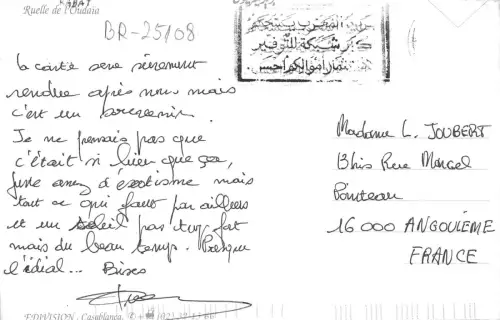 RABAT
Ruelle de l'Oudaïa
BR-25/08
la carte sera sûrement
rendue après nous mais
c'est un souvenir.
Je ne pensais pas que
c'était si bien que ça,
juste assez d'exotisme mais
tout ce qu'il faut par ailleurs
et un soleil pas trop fort
mais du beau temps. Presque
l'idéal... Bises
Madame L. JOUBERT
13bis Rue Marcel
Pointeau
16000 ANGOULÊME
FRANCE
EDIVISION. Casablanca.